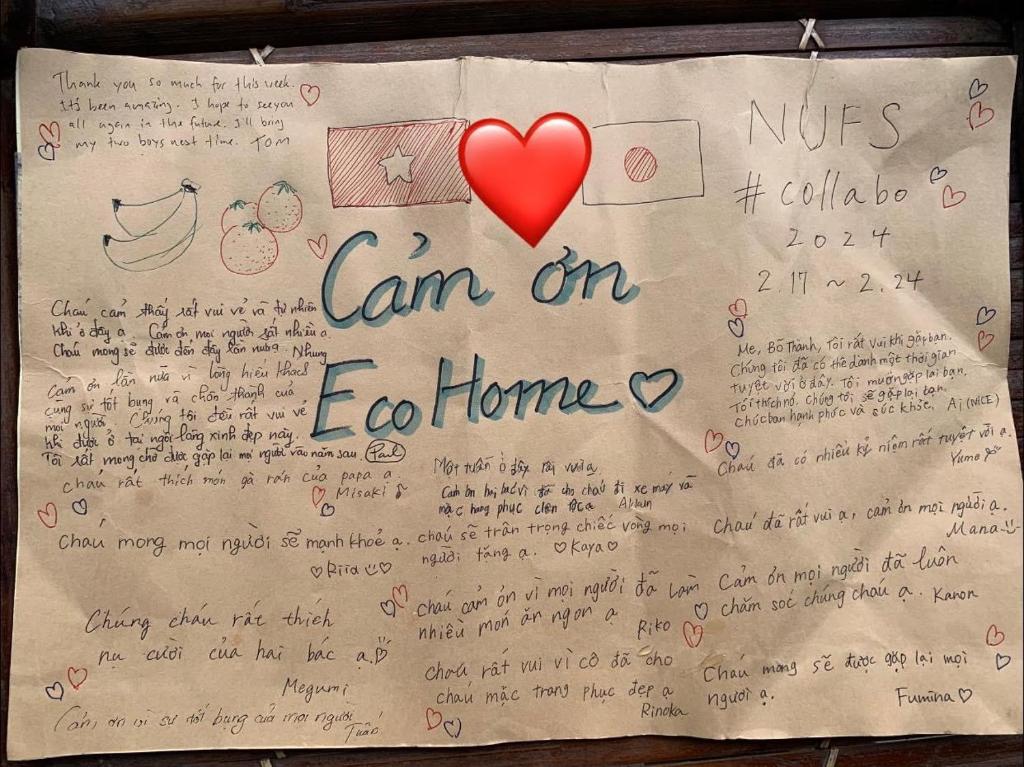 Thank you so much for this week.
It's been amazing. I hope to see you
all again in the future. I'll bring
my two boys next time. Tom
Cảm ơn
Eco Home
NUFS
#collabo
2024
2.17 ~ 2.24
Cháu cảm thấy rất vui vẻ và tự nhiên
khi ở đây ạ. Cảm ơn mọi người rất nhiều ạ.
Cháu mong sẽ được đến đây lần nữa. Nhung
Cảm ơn lần nữa vì lòng hiếu khách
cùng sự tốt bụng và chân thành của
mọi người. Chúng tôi đều rất vui vẻ
khi được ở tại ngôi làng xinh đẹp này.
Tôi rất mong chờ được gặp lại mọi người vào năm sau. Paul
cháu rất thích món gà rán của papa ạ
Misaki
Cháu mong mọi người sẽ mạnh khoẻ ạ.
Riria
Chúng cháu rất thích
nụ cười của hai bác ạ.
Megumi
Cảm ơn vì sự tốt bụng của mọi người
Tuấn
Một tuần ở đây rất vui ạ
Cảm ơn hai bác vì đã cho cháu đi xe máy và
mặc trang phục ạ
cháu sẽ trân trọng chiếc vòng mọi
người tặng ạ. Kaya
cháu cảm ơn vì mọi người đã làm
nhiều món ăn ngon ạ
Riko
cháu rất vui vì cô đã cho
cháu mặc trang phục đẹp ạ
Rinoka
Mẹ, Bố Thành, Tôi rất vui khi gặp bạn.
Chúng tôi đã có thể dành một thời gian
tuyệt vời ở đây. Tôi muốn gặp lại bạn.
Tôi thích nó. Chúng tôi sẽ gặp lại bạn.
chúc bạn hạnh phúc và sức khỏe. Ai (NICE)
Cháu đã có nhiều kỷ niệm rất tuyệt vời ạ.
Yume
Cháu đã rất vui ạ, cảm ơn mọi người ạ.
Mana
Cảm ơn mọi người đã luôn
chăm sóc chúng cháu ạ. Kanon
Cháu mong sẽ được gặp lại mọi
người ạ.
Fumina